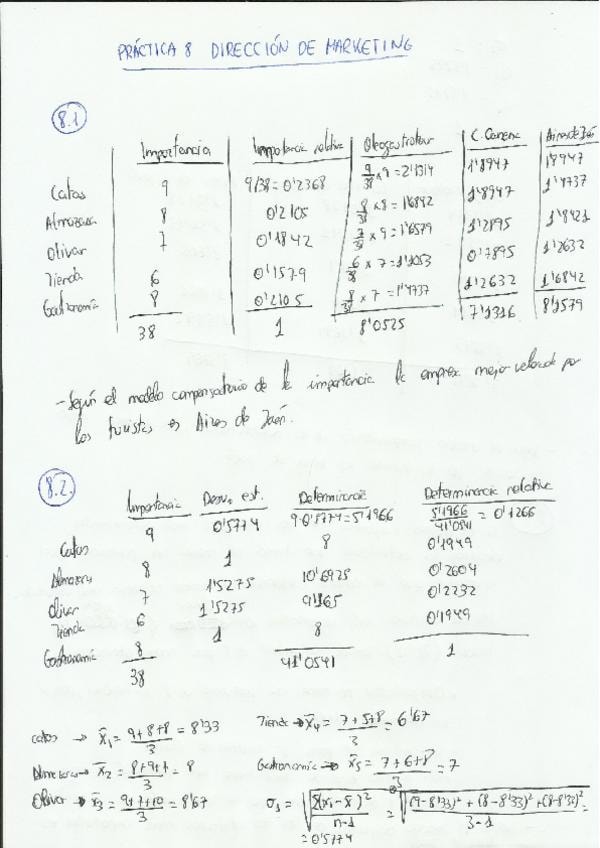 PRÁCTICA 8 DIRECCIÓN DE MARKETING
8.1
Importancia Importancia relativa Oleogastrotour C. Canena Aires de Jaén
Catas 9 9/38 = 0'2368 9/38 x 9 = 2'1314 1'8947 1'8947
Almazara 8 0'2105 8/38 x 8 = 1'6842 1'8947 1'4737
Olivar 7 0'1842 7/38 x 9 = 1'6579 1'2895 1'8421
Tienda 6 0'1579 6/38 x 7 = 1'1053 0'7895 1'2632
Gastronomía 8 0'2105 8/38 x 7 = 1'4737 1'2632 1'6842
38 1 8'0525 7'1316 8'1579
- Según el modelo compensatorio de la importancia la empresa mejor valorada por
los turistas es Aires de Jaén.
8.2.
Importancia Desv. est. Determinancia Determinancia relativa
Catas 9 0'5774 9·0'5774 = 5'1966 5'1966/41'0541 = 0'1266
Almazara 8 1 8 0'1949
Olivar 7 1'5275 10'6925 0'2604
Tienda 6 1'5275 9'165 0'2232
Gastronomía 8 1 8 0'1949
38 41'0541 1
catas → x̄₁ = 9+8+8/3 = 8'33 Tienda → x̄₄ = 7+5+8/3 = 6'67
Almazara → x̄₂ = 8+9+7/3 = 8 Gastronomía → x̄₅ = 7+6+8/3 = 7
Olivar → x̄₃ = 9+7+10/3 = 8'67 σ₁ = √Σ(xᵢ-x̄)²/n-1 = √(9-8'33)² + (8-8'33)² + (8-8'33)²/3-1 =
= 0'5774